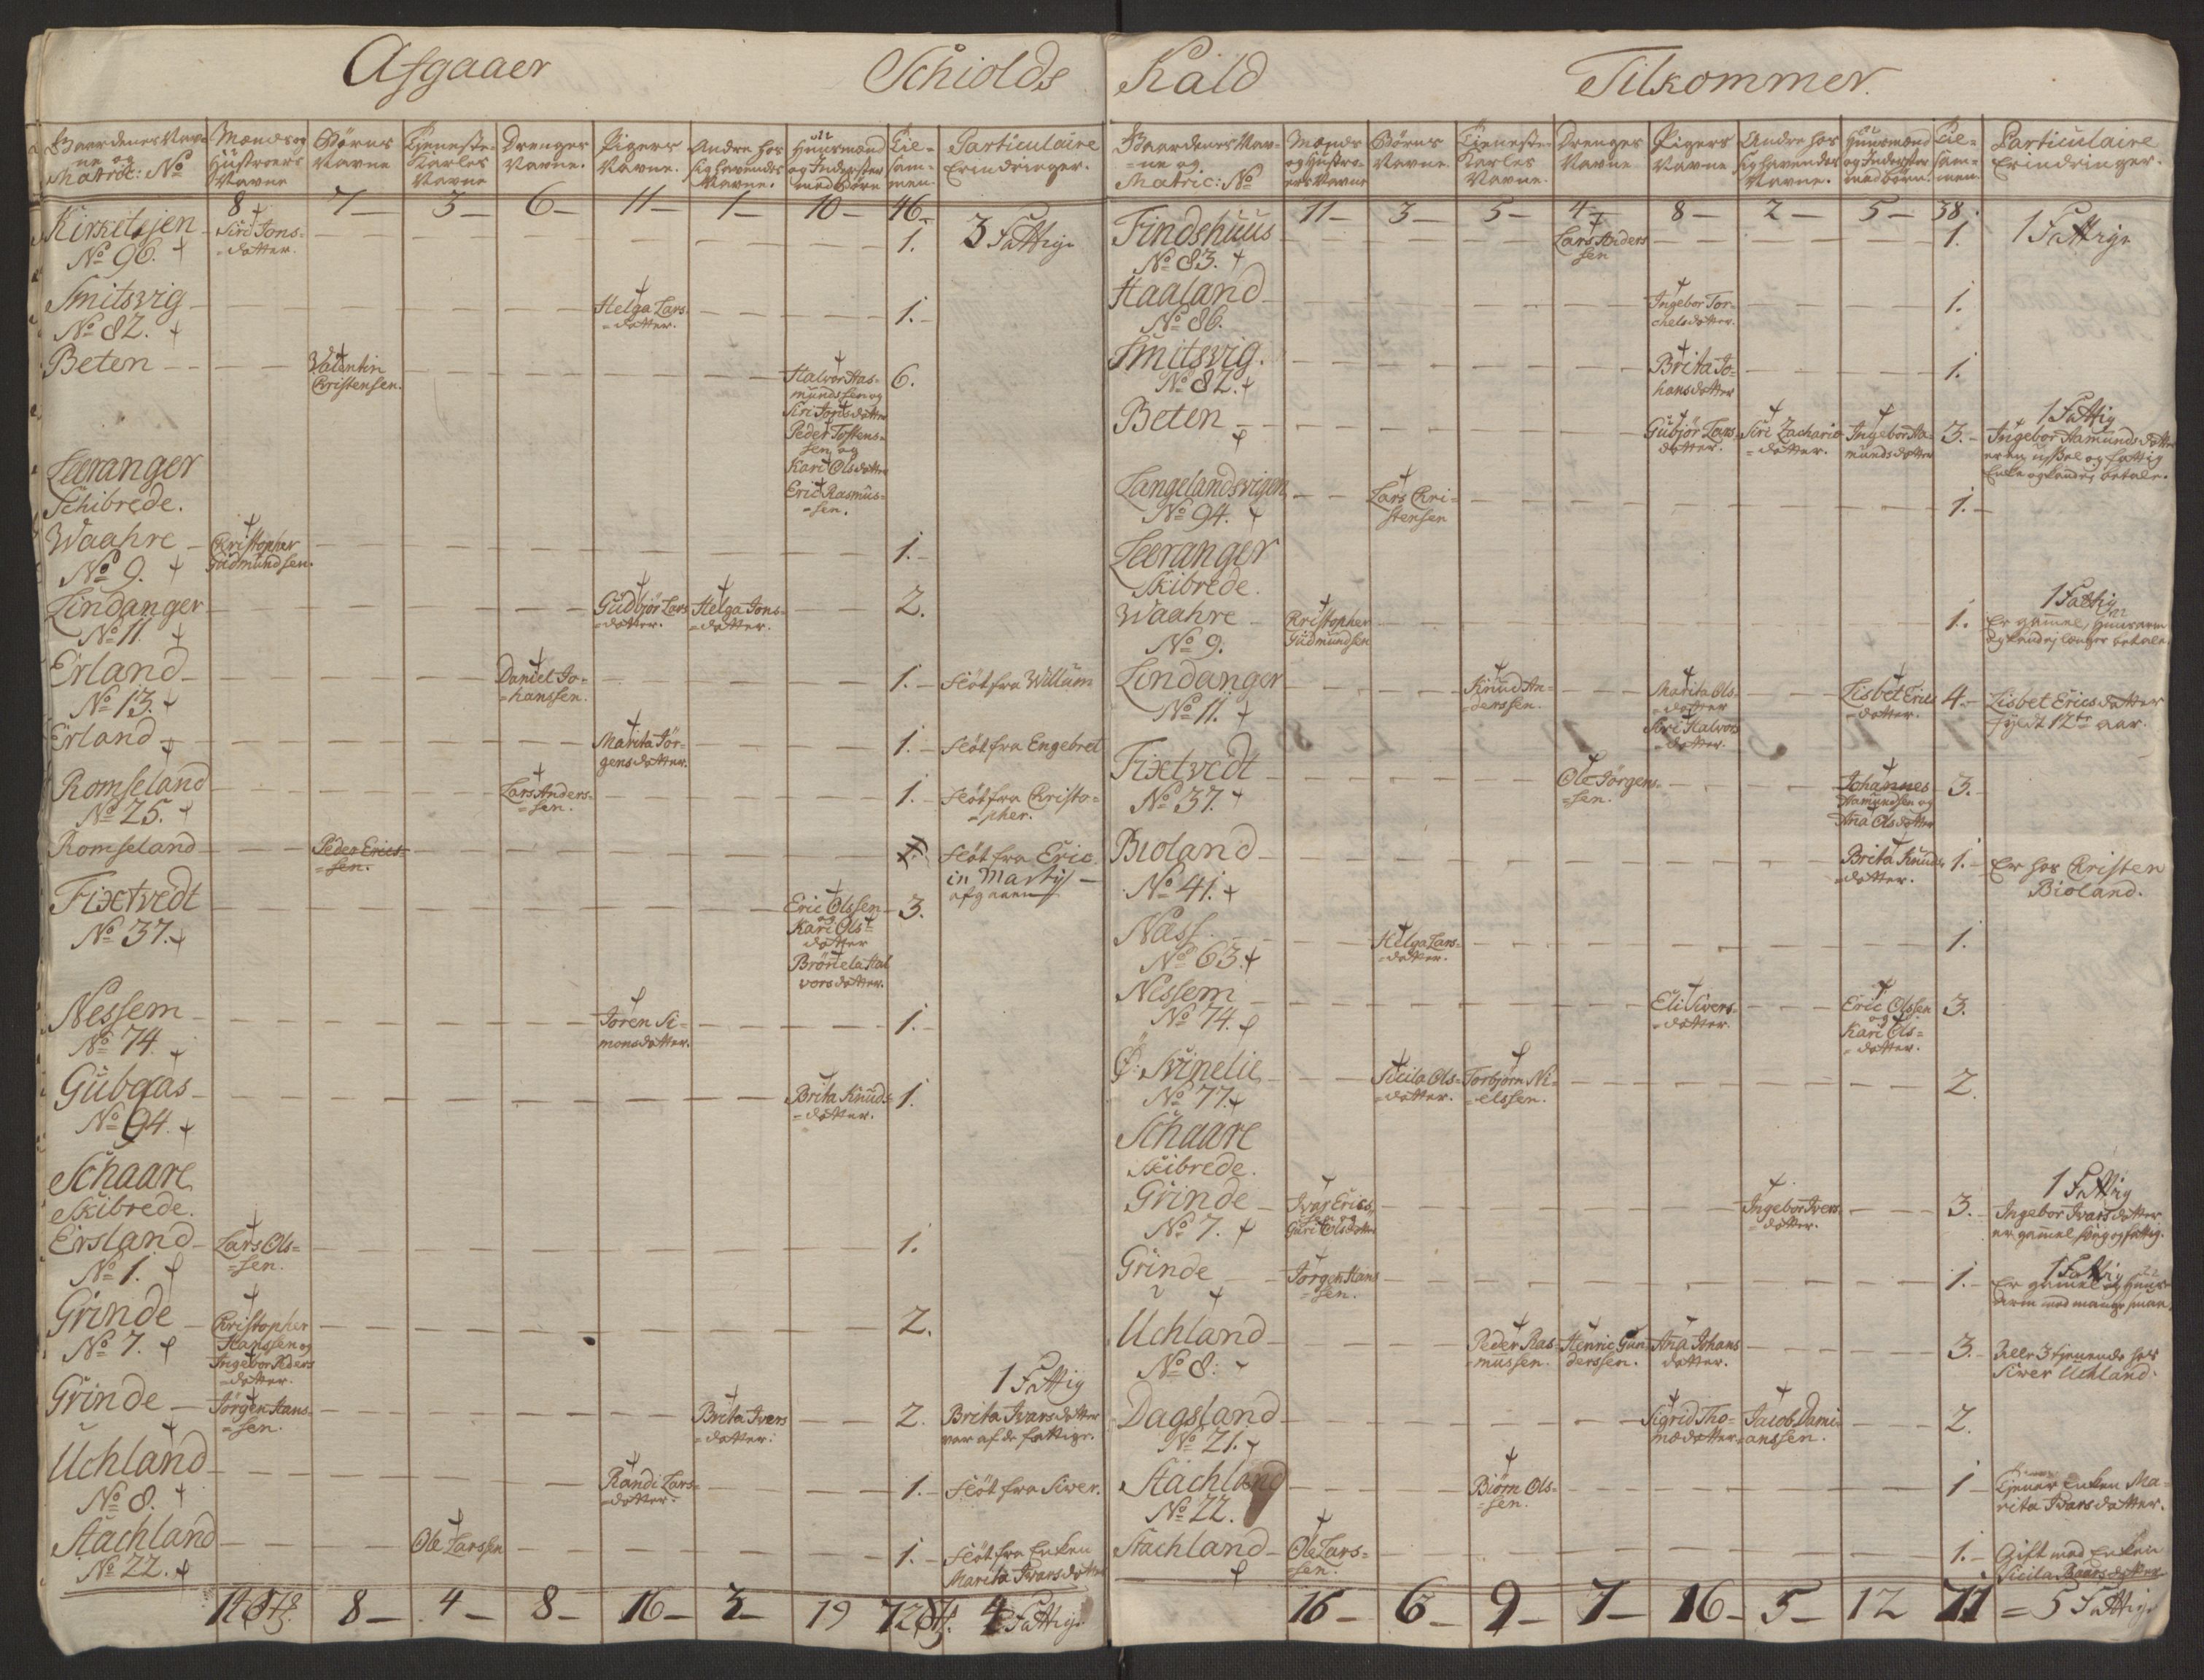 Afgaaer Schiolds
Gaardenes Navne og Matric: No | Mænds og Hustroers Navne | Børns Navne | Tjeneste-Karles Navne | Drenges Navne. | Pigers Navne. | Andre hos sig havendes Navne. | Huusmænd og Inderster med Børn | Tilsammen. | Particulaire Erindringer.
8 | 7 — | 3 — | 6 — | 11 — | 1 — | 10 — | 46 —
Kirketejen No 96. | Siri Jonsdatter. | 1. | 3 Fattige
Smitsvig No 82. | Helga Larsdatter. | 1.
Beten | Valentin Christensen. | Halvor Aasmundssen og Siri Jonsdatter Peder Tostenssen og Kari Olsdatter Eric Rasmussen. | 6.
Leeranger Schibrede.
Waahre No 9. | Kristopher Gudmundsen. | 1.
Lindanger No 11. | Gudbjør Larsdatter. | Helga Jonsdatter. | 2.
Erland No 13. | Daniel Johanssen. | 1. | fløt fra Willum
Erland | Marita Jørgensdatter. | 1. | fløt fra Engebret
Romseland No 25. | Lars Anderssen. | 1. | fløt fra Christopher.
Romseland | Peder Ericssen. | 1. | fløt fra Eric in Martij afgaaen
Fixetvedt No 37. | Eric Olssen og Kari Olsdatter Brønela Halvorsdatter. | 3.
Nessem No 74. | Joren Simonsdatter. | 1.
Gubaas No 94. | Brita Knudsdatter. | 1.
Schaare Skibrede.
Ersland No 1. | Lars Olssen. | 1.
Grinde No 7. | Kristopher Hanssen og Ingebor Pedersdatter. | 2.
Grinde | Jørgen Hanssen. | Brita Iversdatter. | 2. | 1 Fattig Brita Ivarsdatter var af de fattige.
Uchland No 8. | Randi Larsdatter. | 1. | fløt fra Siver.
Stachland No 22. | Ole Larssen | 1. | fløt fra Enken Marita Ivarsdatter
14 | 8 — | 4 — | 8 — | 16 — | 3 — | 19 | 72 | 4 Fattige
Kald Tilkommer.
Gaardenes Navne og Matric: No | Mænds og Hustroers Navne | Børns Navne | Tjeneste-Karles Navne. | Drenges Navne | Pigers Navne | Andre hos sig havendes Navne. | Huusmænd og Inderster med børn. | Tilsammen | Particulaire Erindringer.
11 — | 3 — | 5 — | 4 | 8 — | 2 — | 5 — | 38.
Findshuus No 83. | Lars Anderssen | 1. | 1 Fattige
Haaland No 86. | Ingebor Torchelsdatter. | 1.
Smitsvig. No 82. | Brita Johansdatter | 1.
Beten | Gubjør Larsdatter. | Siri Zachariædatter. | Ingebor Aamundsdatter | 3. | 1 Fattig Ingebor Aamundsdatter er en ussel og fattig Enke og kand ej betale.
Langelandsvigen No 94. | Lars Christensen | 1.
Leeranger Skibrede.
Waahre No 9. | Kristopher Gudmundsen | 1. | 1 Fattig Er gamel, Huusarm og kand ej længer betale
Lindanger No 11. | Knud Anderssen. | Marita Olsdatter Siri Halvorsdatter. | Lisbet Ericsdatter. | 4. | Lisbet Ericsdatter fyldt 12te aar.
Fixetvedt No 37. | Ole Jørgenssen. | Johannes Aamundsen og Aña Olsdatter | 3.
Bioland No 41. | Brita Knudsdatter. | 1. | Er hos Christen Bioland.
Næss No 63. | Helga Larsdatter. | 1.
Nessem No 74. | Eli Siversdatter. | Eric Olssen og Kari Olsdatter. | 3.
Ø: Svinelie No 77. | Sicila Olsdatter. | Torbjørn Nielssen. | 2.
Schaare Skibrede.
Grinde No 7. | Ivar Ericssen og Guri Olsdatter | Ingebor Iversdatter. | 3. | 1 Fattig Ingebor Ivarsdatter er gamel svag og fattig.
Grinde | Jørgen Hanssen. | 1. | 1 Fattig Er gamel og Huusarm med mange smaae
Uchland No 8: | Peder Rasmussen. | Henric Gunderssen. | Aña Johansdatter. | 3. | Alle 3 tjenende hos Siver Uchland.
Dagsland No 21. | Sigrid Thomædatter. | Jacob Damianssen. | 2.
Stachland No 22. | Biørn Olssen. | 1 | Tjener Enken Marita Ivarsdatter.
Stachland | Ole Larssen. | 1. | Gift med Enken Sicila Baarsdatter
16 — | 6 — | 9 — | 7 — | 16 — | 5 — | 12 | 71 = 5 Fattige